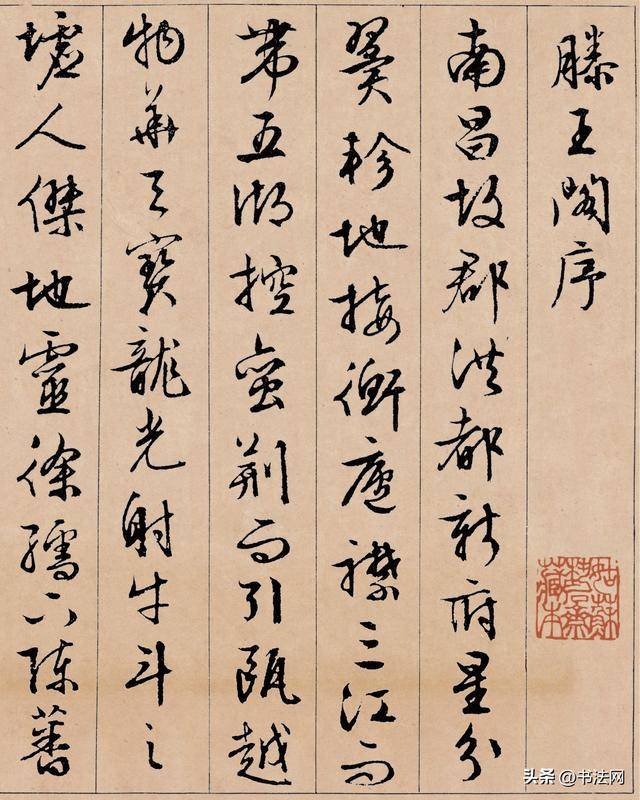 滕王閣序
南昌故郡洪都新府星分
翼軫地接衡廬襟三江而
帶五湖控蠻荆而引甌越
物華天寶龍光射牛斗之
墟人傑地靈徐孺下陳蕃
头条 @书法网